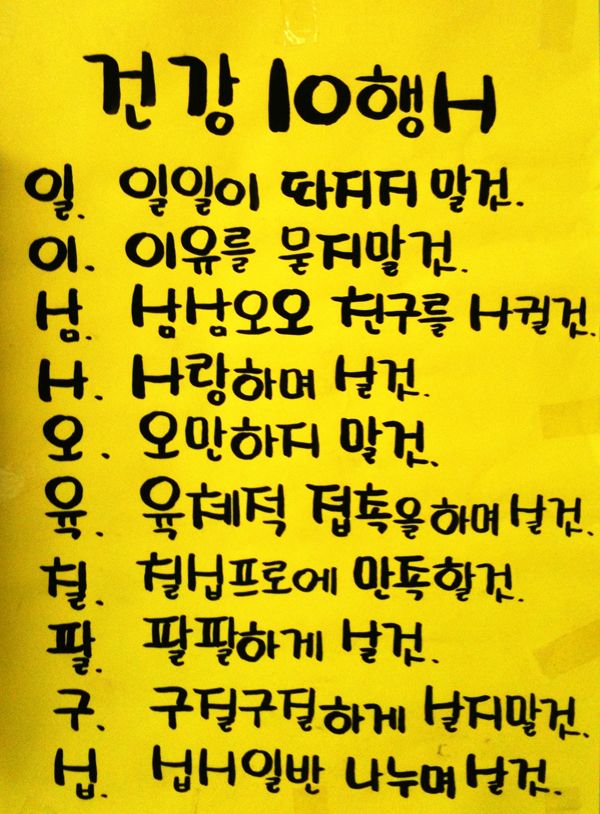 건강 10행시
일. 일일이 따지지 말것.
이. 이유를 묻지말것.
삼. 삼삼오오 친구를 사귈것.
사. 사랑하며 살것.
오. 오만하지 말것.
육. 육체적 접촉을하며 살것.
칠. 칠십프로에 만족할것.
팔. 팔팔하게 살것.
구. 구질구질하게 살지말것.
십. 십시일반 나누며살것.